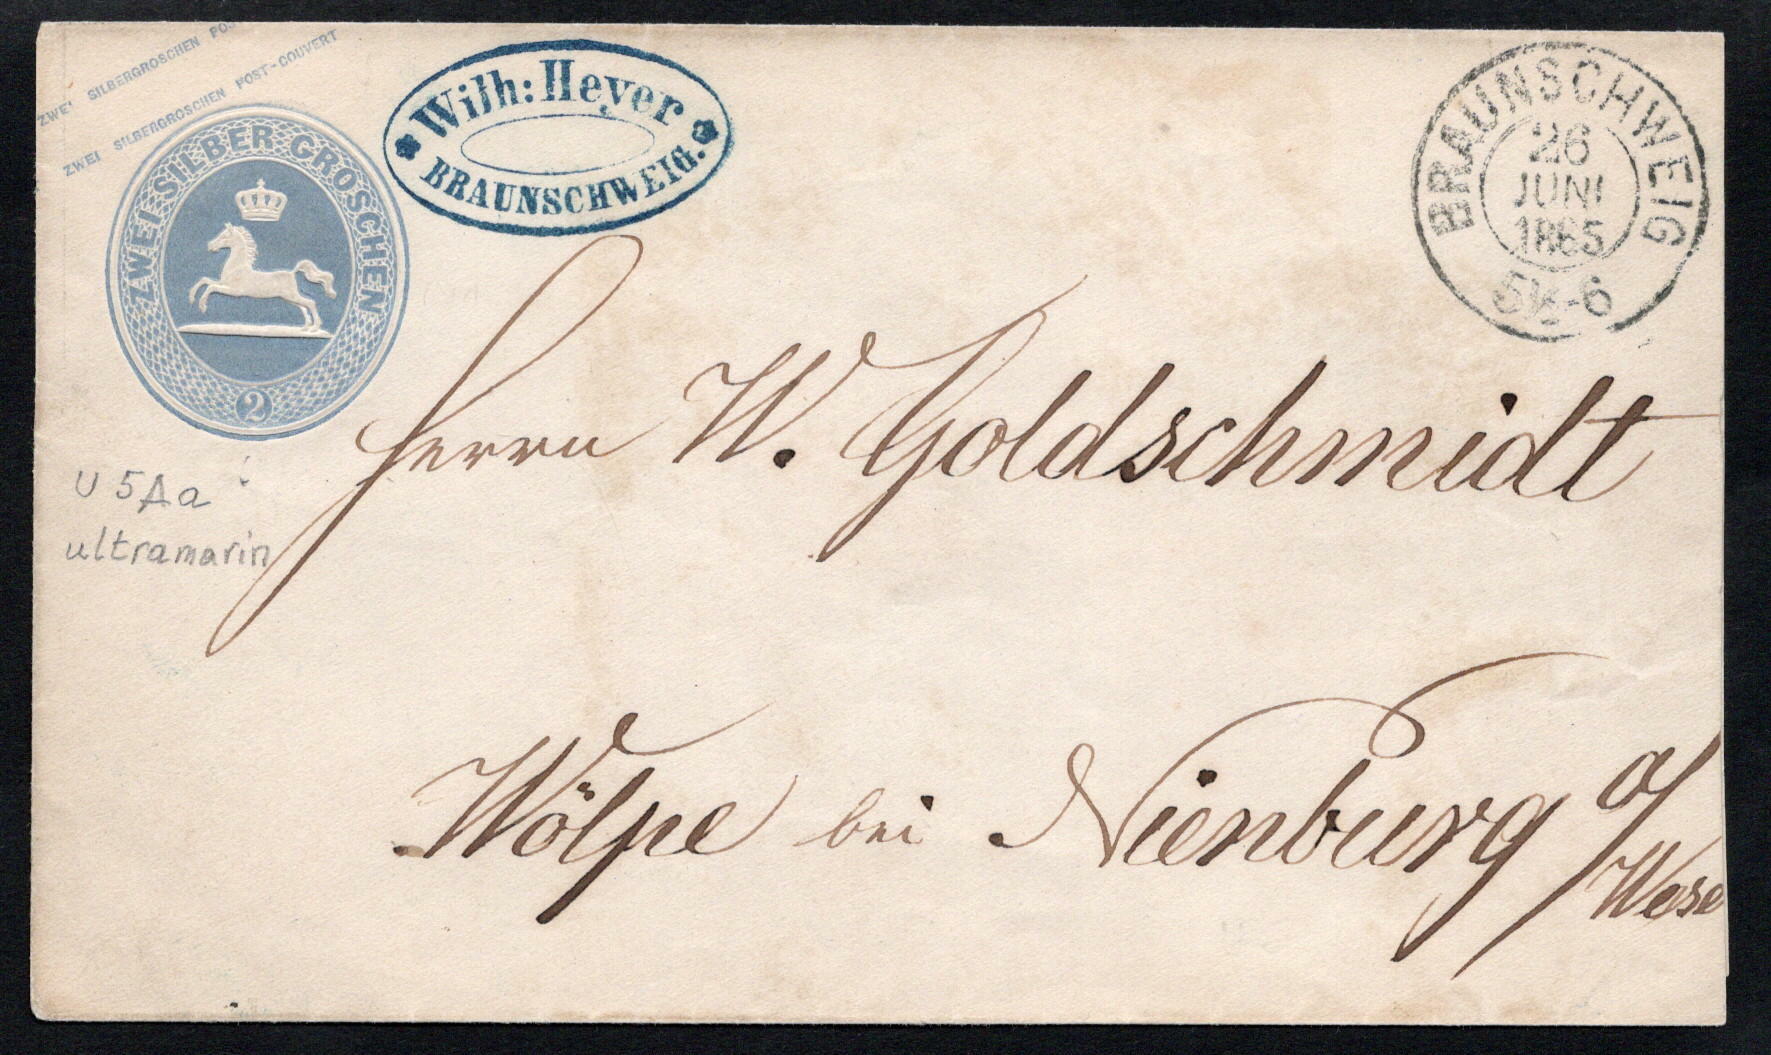 ZWEI SILBERGROSCHEN POS
ZWEI SILBERGROSCHEN POST-COUVERT
ZWEI SILBER GROSCHEN
2
Wilh: Heyer
BRAUNSCHWEIG.
BRAUNSCHWEIG
26
JUNI
1865
5½-6
U 5Aa
ultramarin
Herrn W. Goldschmidt
Wölpe bei Nienburg a/
Wese